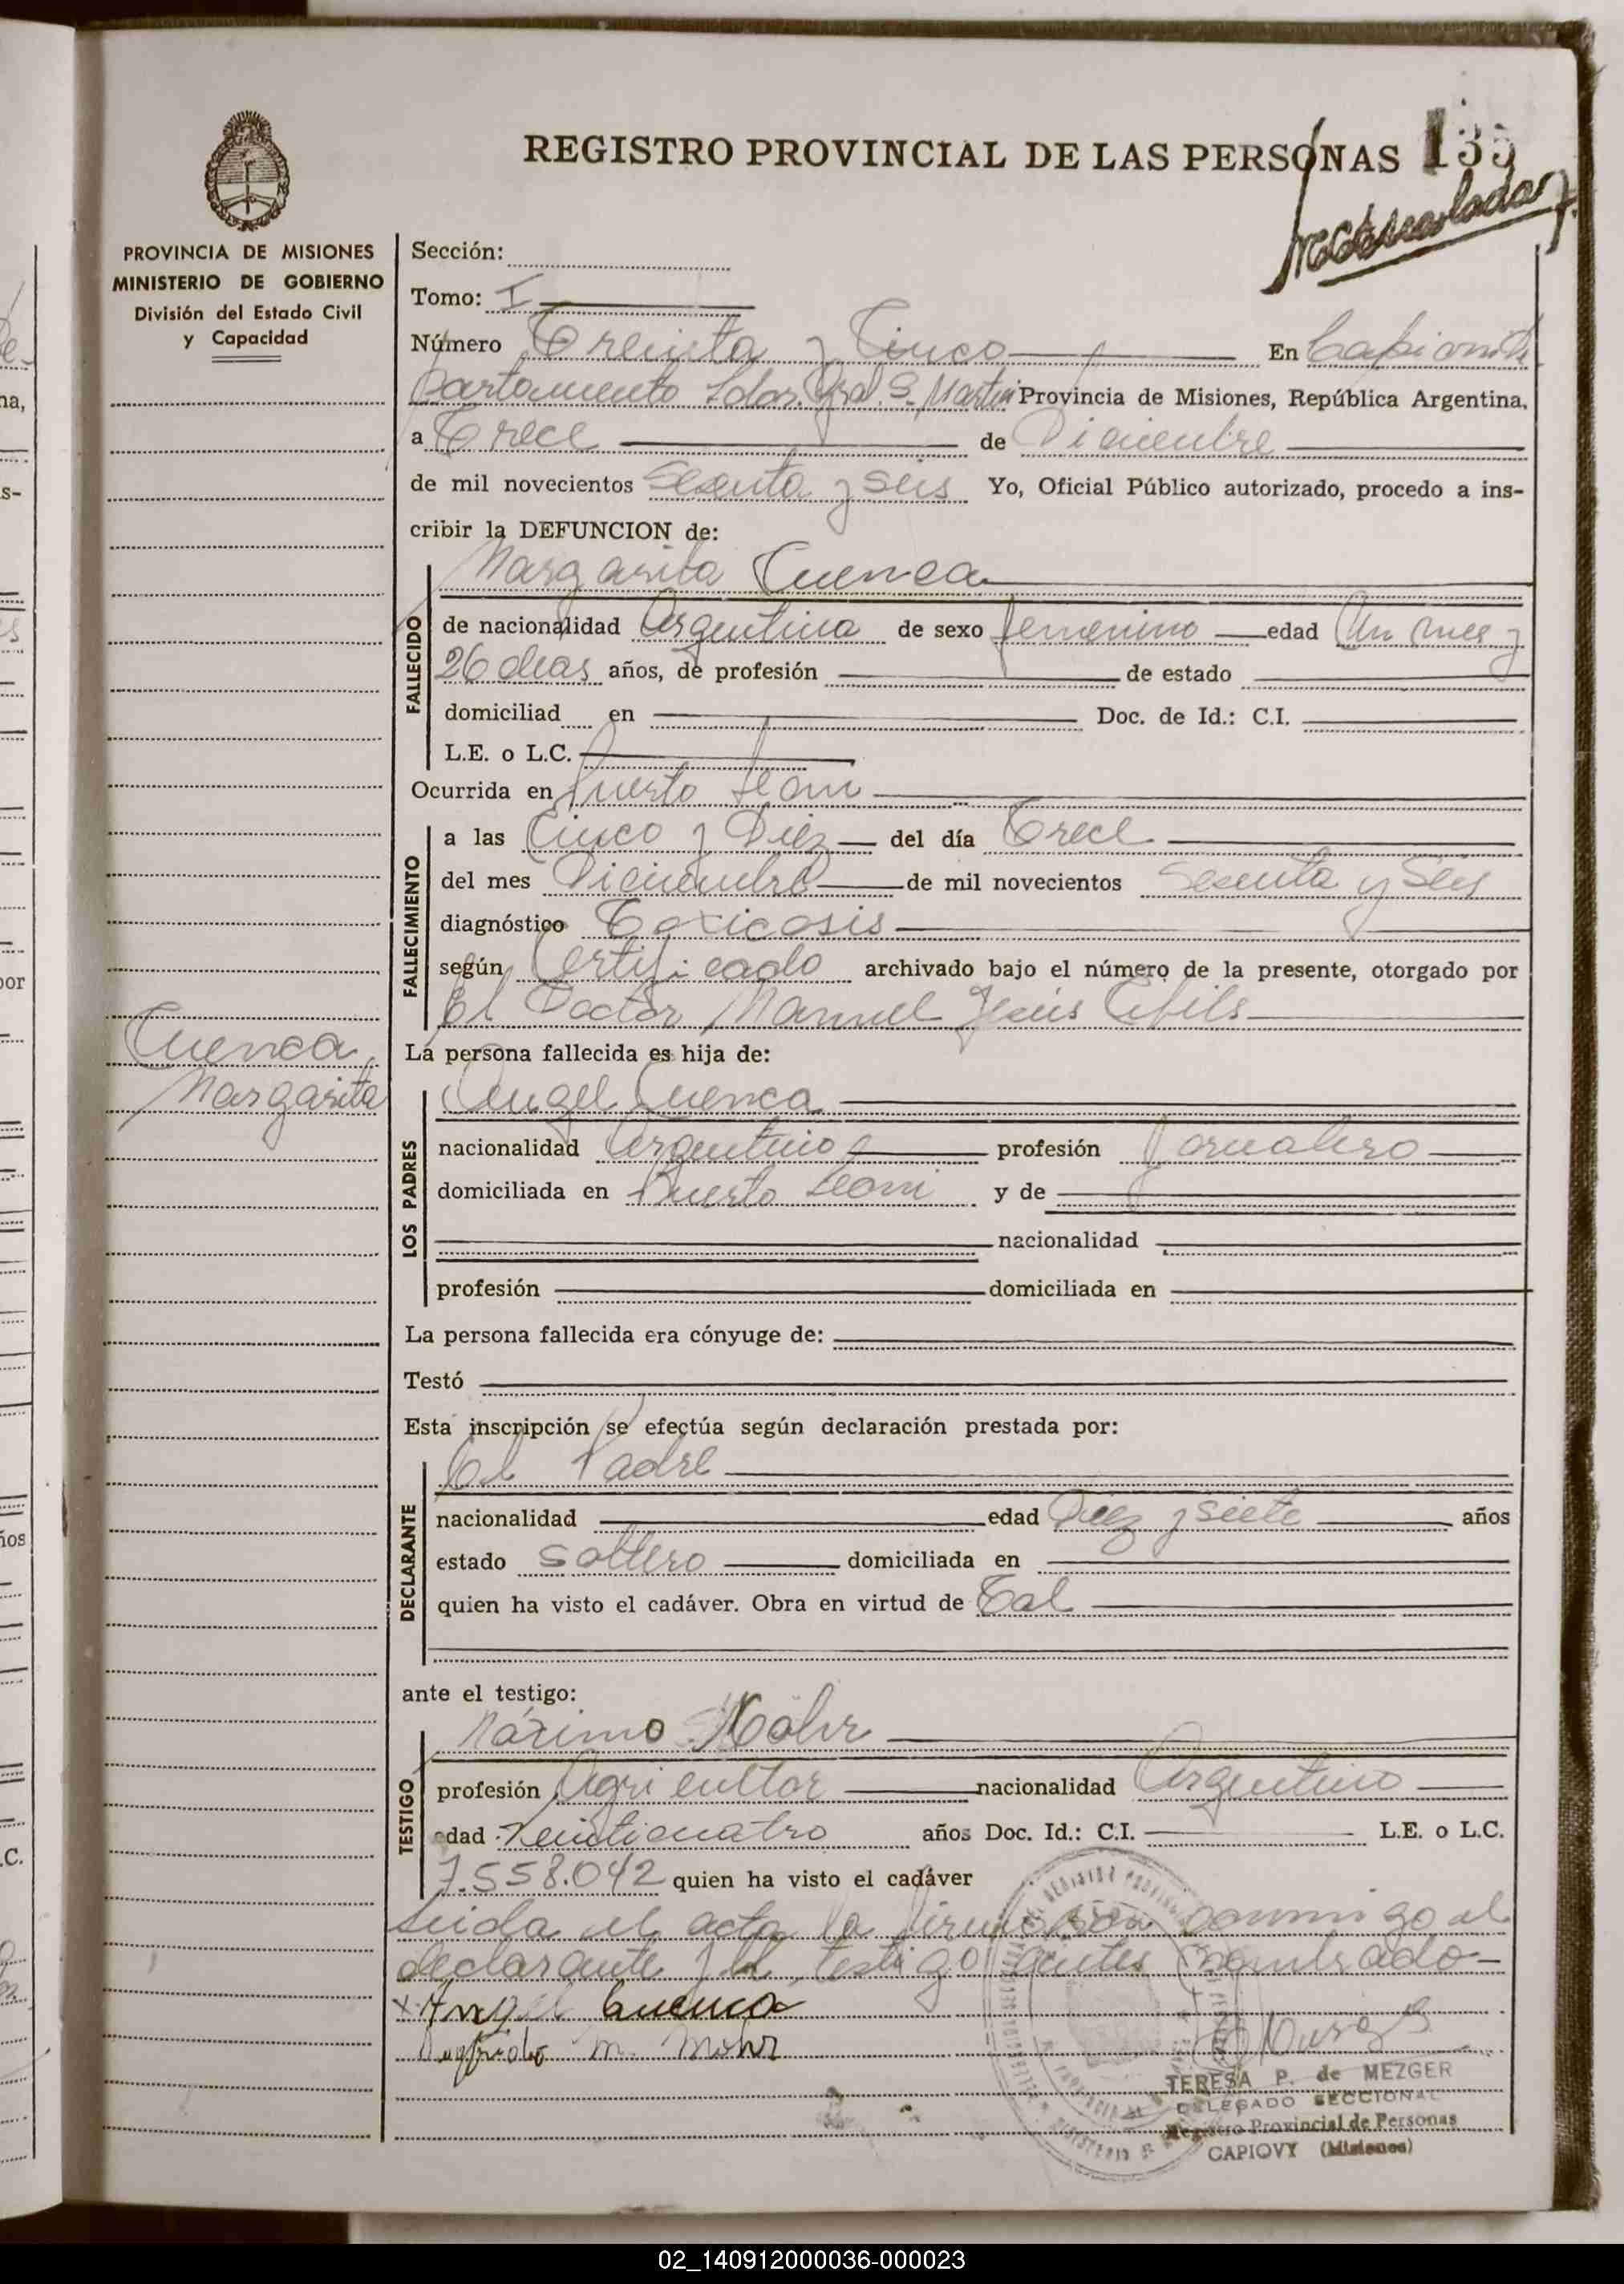 REGISTRO PROVINCIAL DE LAS PERSONAS 135
PROVINCIA DE MISIONES
MINISTERIO DE GOBIERNO
División del Estado Civil
y Capacidad
Sección:
Tomo: I
Número Treinta y Cinco En Capioví De
partamento Ldor. Gral. S. Martin Provincia de Misiones, República Argentina,
a Trece de Diciembre
de mil novecientos Sesenta y Seis Yo, Oficial Público autorizado, procedo a ins-
cribir la DEFUNCION de:
Margarita Cuenca
FALLECIDO
de nacionalidad Argentina de sexo femenino edad Un mes y
26 dias años, de profesión de estado
domiciliad en Doc. de Id.: C.I.
L.E. o L.C.
Ocurrida en Puerto Leoni
FALLECIMIENTO
a las Cinco y Diez del día Trece
del mes Diciembre de mil novecientos Sesenta y Seis
diagnóstico Toxicosis
según Certificado archivado bajo el número de la presente, otorgado por
El Doctor Manuel Jesús
Cuenca,
Margarita
La persona fallecida es hija de:
LOS PADRES
Angel Cuenca
nacionalidad Argentino profesión Jornalero
domiciliada en Puerto Leoni y de
nacionalidad
profesión domiciliada en
La persona fallecida era cónyuge de:
Testó
Esta inscripción se efectúa según declaración prestada por:
DECLARANTE
El Padre
nacionalidad edad Diez y siete años
estado Soltero domiciliada en
quien ha visto el cadáver. Obra en virtud de Tal
ante el testigo:
TESTIGO
Máximo Mohr
profesión Agricultor nacionalidad Argentino
edad Veinticuatro años Doc. Id.: C.I. L.E. o L.C.
7.558.042 quien ha visto el cadáver
Leida el acta la firman con migo el
declarante y el testigo antes nombrado
x Angel Cuenca
M. Mohr
TERESA P. de MEZGER
DELEGADO SECCIONAL
Registro Provincial de Personas
CAPIOVY (Misiones)
02_140912000036-000023